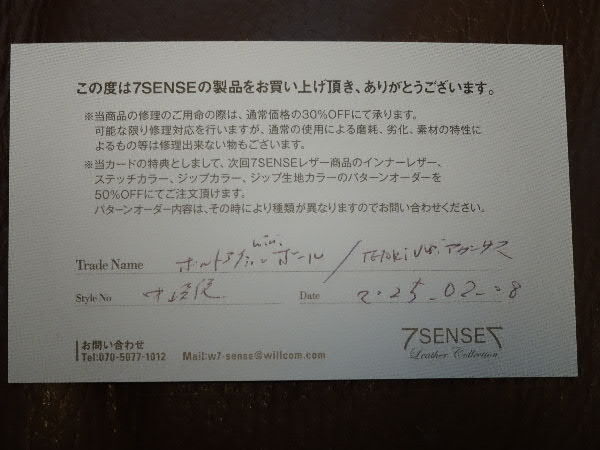 この度は7SENSEの製品をお買い上げ頂き、ありがとうございます。
※当商品の修理のご用命の際は、通常価格の30%OFFにて承ります。
可能な限り修理対応を行いますが、通常の使用による磨耗、劣化、素材の特性に
よるもの等は修理出来ない物もございます。
※当カードの特典としまして、次回7SENSEレザー商品のインナーレザー、
ステッチカラー、ジップカラー、ジップ生地カラーのパターンオーダーを
50%OFFにてご注文頂けます。
パターンオーダー内容は、その時により種類が異なりますのでお問い合わせください。
Trade Name ホール /
Style No Date 2025.02.08
7SENSE7
Leather Collection
お問い合わせ
Tel:070-5077-1012 Mail:w7-sense@willcom.com